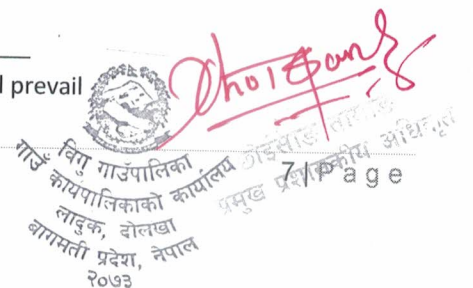 l prevail
विगु गाउँपालिका
गाउँ कार्यपालिकाको कार्यालय
लादुक, दोलखा
बागमती प्रदेश, नेपाल
२०७३
प्रमुख प्रशासकीय अधिकृत
7 | P a g e